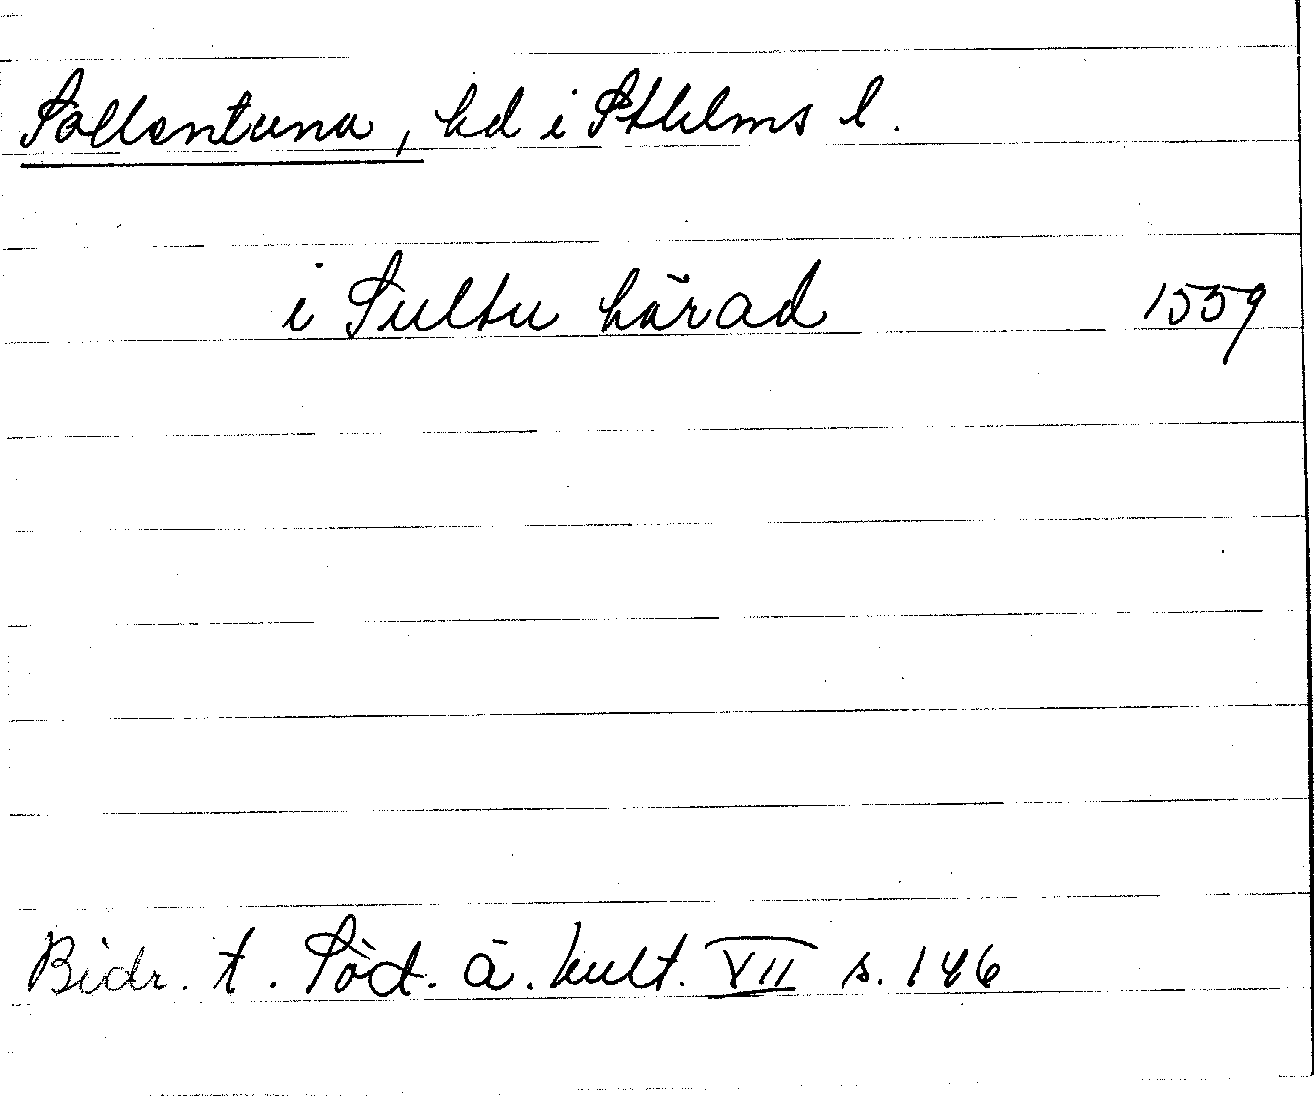 Sollentuna, hd i Sthlms l.
i Sultu härad 1559
Bidr. t. Söd. ä. kult. VII s. 146